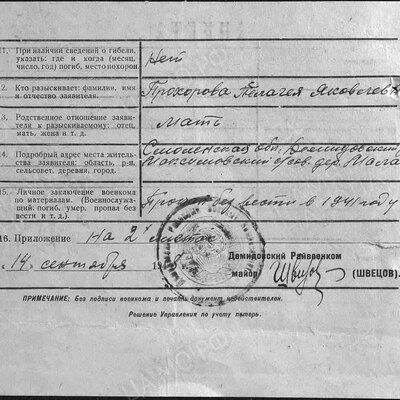 АНКЕТ
11. При наличии сведений о гибели, указать: где и когда (месяц, число, год) погиб, место похорон.
Нет
12. Кто разыскивает: фамилия, имя и отчество заявителя.
Прохорова Пелагея Яковлевна
13. Родственное отношение заявителя к разыскиваемому: отец, мать, жена и т. д.
Мать
14. Подробный адрес места жительства заявителя: область, р-н, сельсовет, деревня, город.
Смоленская обл.
Максимовский с/сов. дер.
15. Личное заключение военкома по материалам. (Военнослужащий, погиб, умер, пропал без вести и т. д.).
Пропал без вести в 1941 году
16. Приложение На 2х листах
14. сентября
Демидовский Райвоенком
майор (ШВЕЦОВ).
ПРИМЕЧАНИЕ: Без подписи военкома и печати документ недействителен.
Решение Управления по учету потерь.